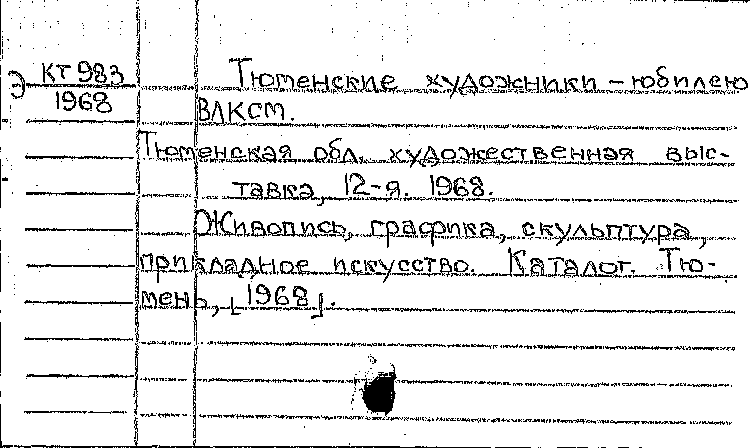 Э КТ 983
1968
Тюменские художники – юбилею
ВЛКСМ.
Тюменская обл. художественная выс-
тавка, 12-я. 1968.
Живопись, графика, скульптура,
прикладное искусство. Каталог. Тю-
мень, [1968].